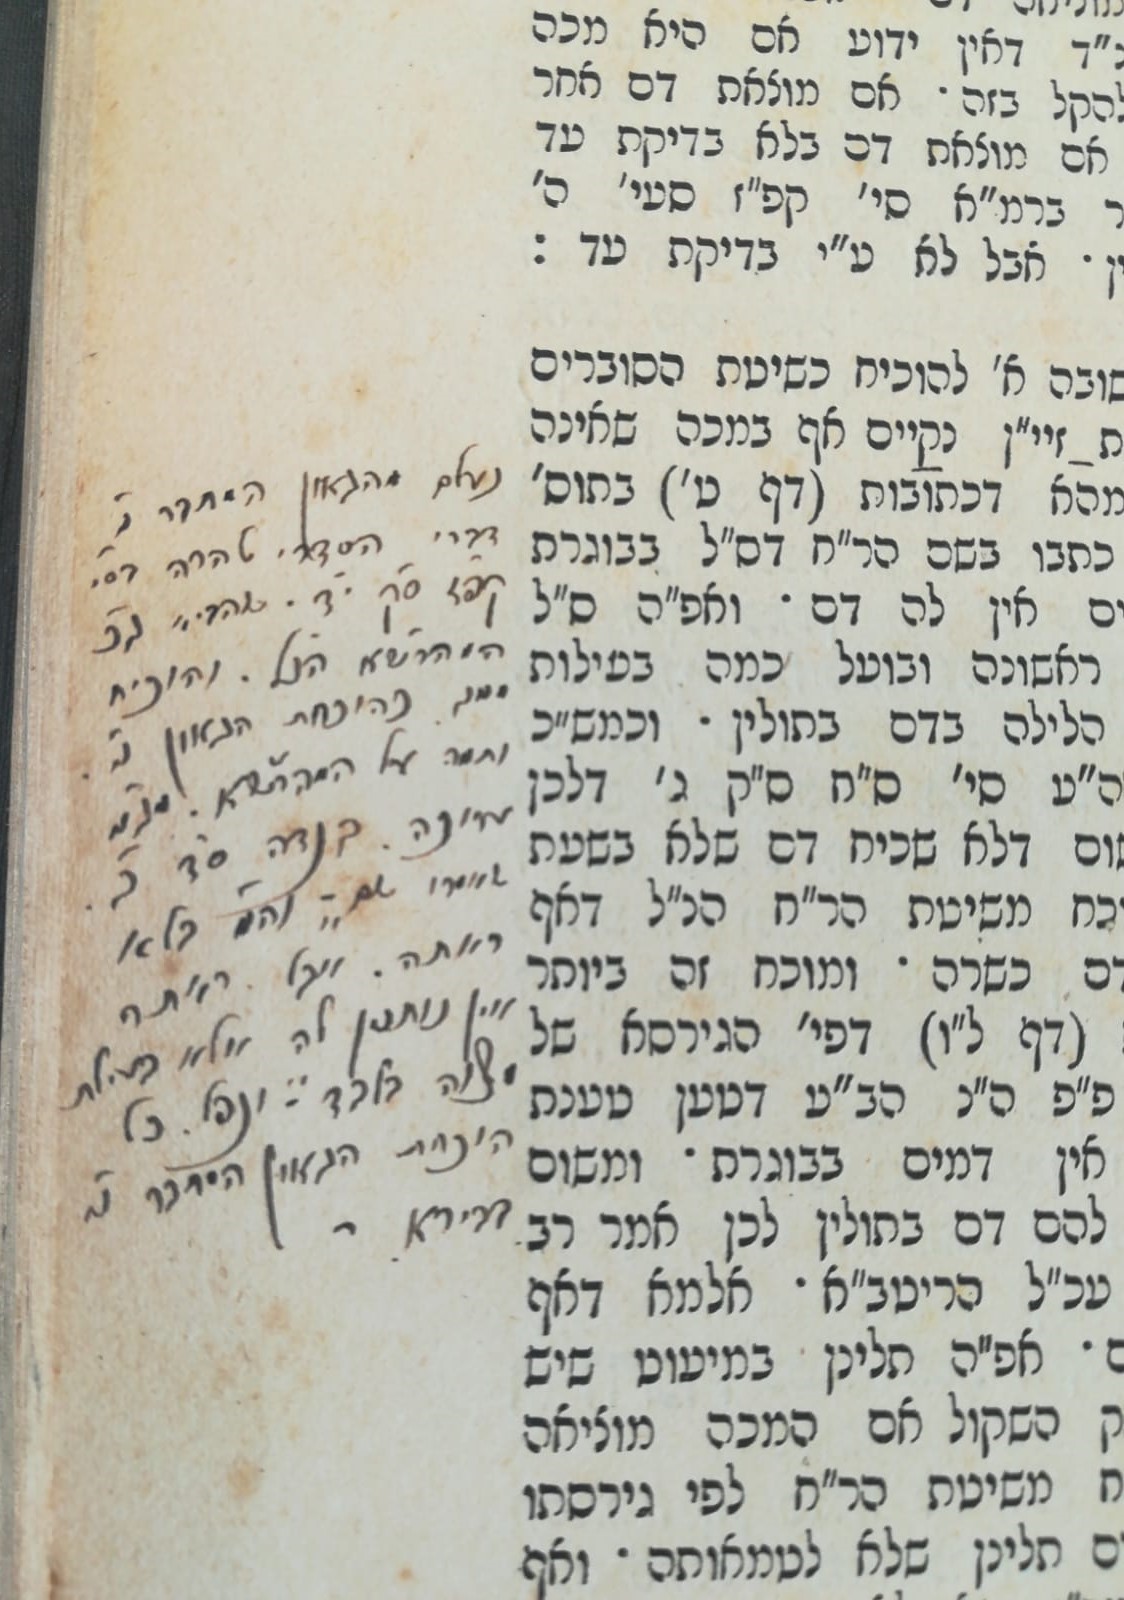 מ"ד דאין ידוע אם היא מכה
להקל בזה · אם מוצאת דם אחר
אם מוצאת דם בלא בדיקת עד
ר ברמ"א סי' קפ"ז סעי' ה'
ין · אבל לא ע"י בדיקת עד :
שובה א' להוכיח כשיטת הסוברים
ת זיי"ן נקיים אף במכה שאינה
מהא דכתובות (דף ט') בתוס'
כתבו בשם הר"ח דס"ל בבוגרת
ים אין לה דם · ואפ"ה ס"ל
ראשונה ובועל כמה בעילות
הלילה בדם בתולין · וכמש"כ
ה"ע סי' ס"ח ס"ק ג' דלכן
שום דלא שכיח דם שלא בשעת
וכח משיטת הר"ח הנ"ל דאף
דם כשרה · ומוכח זה ביותר
(דף ל"ו) דפי' הגירסא של
פ"פ ה"נ הב"ע דטען טענת
אין דמים בבוגרת · ומשום
להם דם בתולין לכן אמר רב
עכ"ל הריטב"א · אלמא דאף
ם · אפ"ה תלינן במיעוט שיש
ק השקול אם המכה מוציאה
ח משיטת הר"ח לפי גירסתו
ם תלינן שלא לטמאותה · ואף
נעלם מהגאון המחבר נ"י
דברי הסדרי טהרה בסי'
קפ"ז ס"ק י"ד. שהביא ג"כ
המהרש"א הנ"ל. והוכיח
ממנו כהוכחת הגאון נ"י.
ותמה על המהרש"א. מגמ'
ערוכה. בנדה ס"ד ב'.
שאמרו שם "והא בלא
ראתה. אבל ראתה
אין נותנין לה אלא בעילת
מצוה בלבד" ונפל. כל
הוכחת הגאון המחבר נ"י